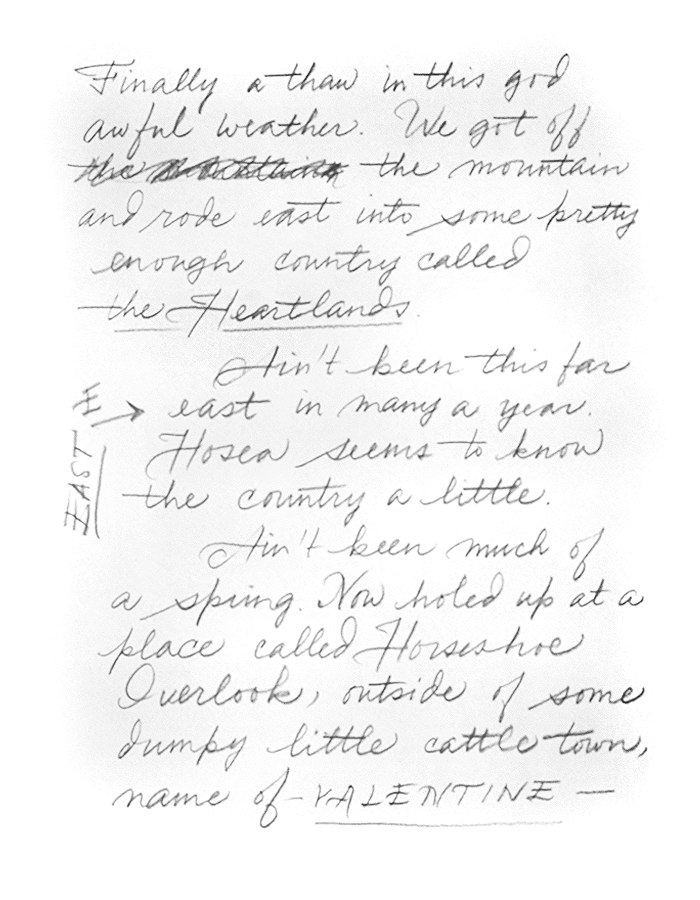 Finally a thaw in this god
awful weather. We got off
the mountain the mountain
and rode east into some pretty
enough country called
the Heartlands.
Ain't been this far
E → east in many a year.
Hosea seems to know
EAST
the country a little.
Ain't been much of
a spring. Now holed up at a
place called Horseshoe
Overlook, outside of some
dumpy little cattle town,
name of - VALENTINE —